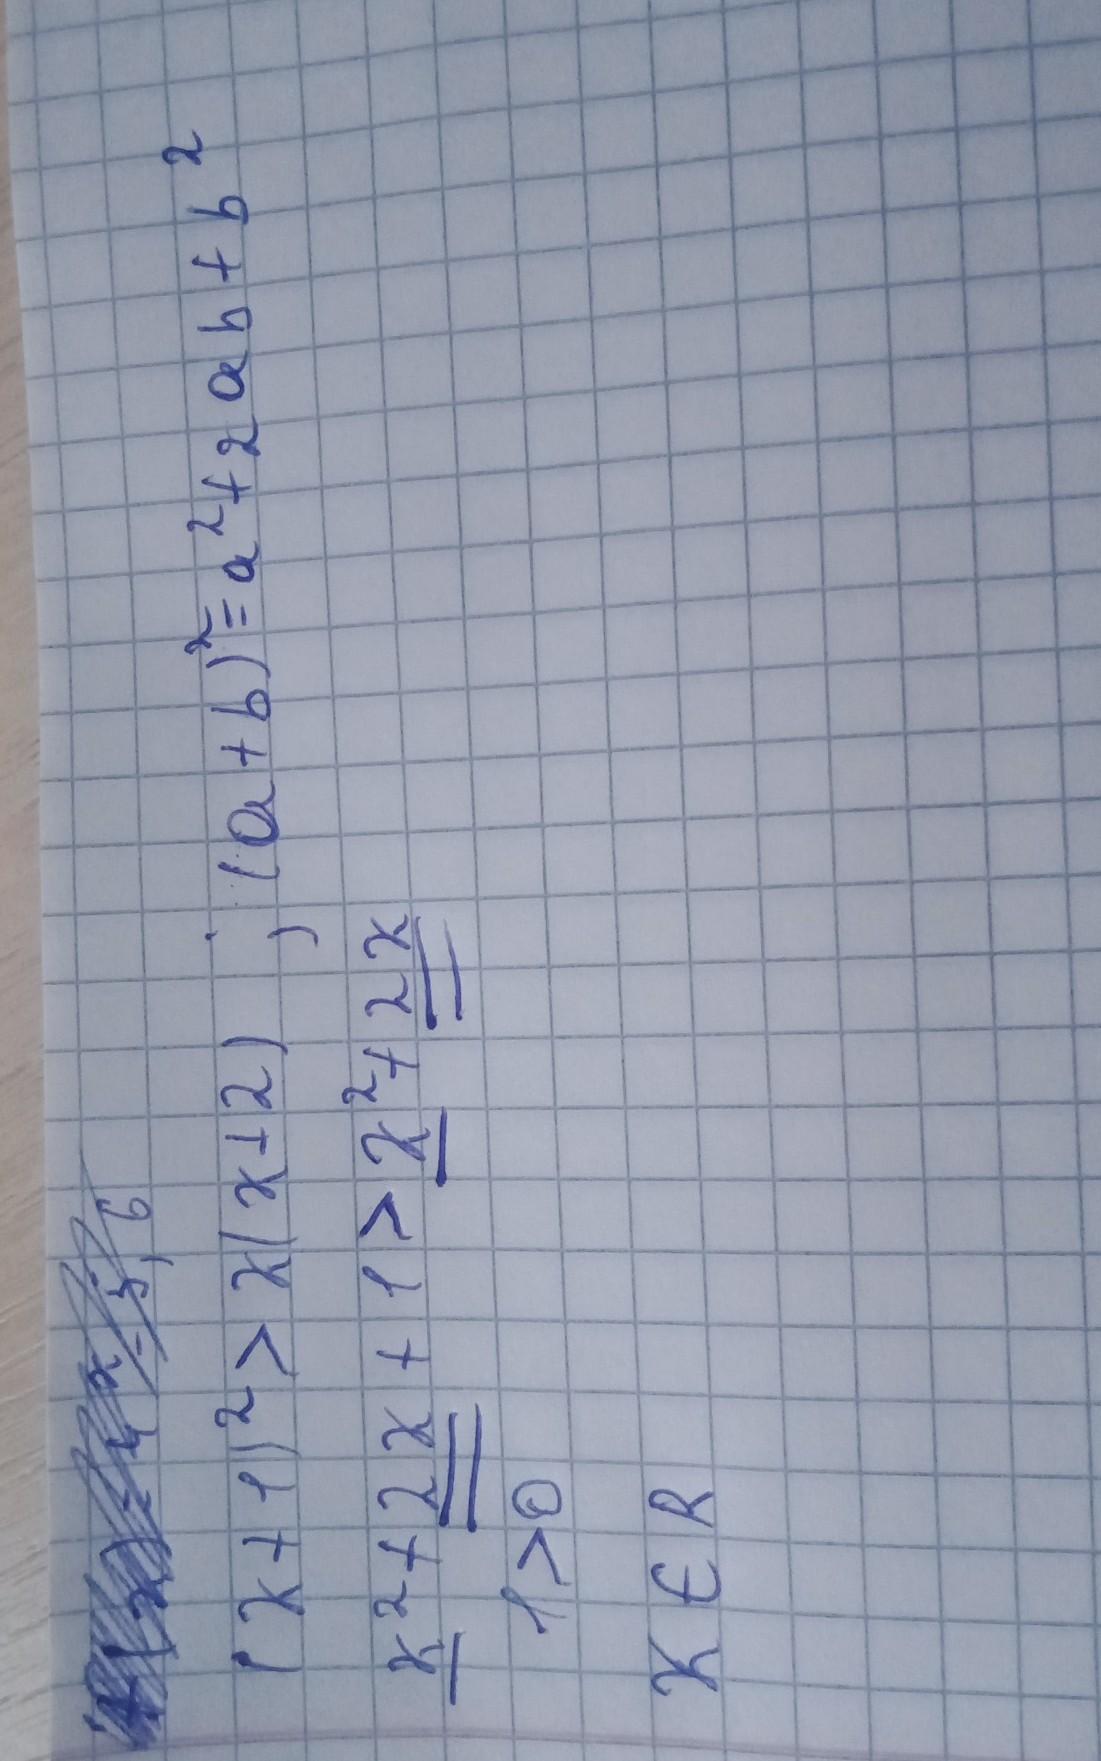 (x+1)²>x(x+2) ; (a+b)²=a²+2ab+b²
x²+2x+1>x²+2x
1>0
x∈R